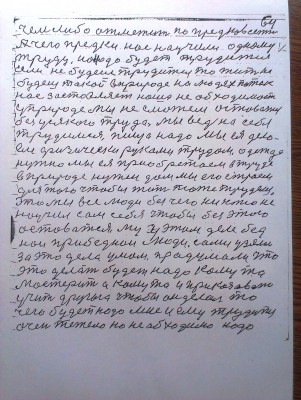 64
чем либо отметит по предковсети
А чего предки нас научили одному
труду, надо будет трудится
если не будеш трудится то жить не
будеш такой в природе на людех поток
нас заставляет наша необходимост
у природе мы не сможем остоватся
без усякого труда, мы ведь на себя
трудимся, пища надо мы ея дела-
ем физически рукамы трудом, одежда
нужно мы ея приобретаем в труде
в природе нужен дом мы его строем
для того чтобы жит тоже трудем,
Это мы все люди без чего никто не
научил сам себя чтобы без этого
остоватся му у этом деле бед
ном прибедном Люди, сами узяли
за это дела умом, продумали это
это делат будет надо кому та
мастерит а кому то и приказоват
учит другыга чтобы он делал то
чего будет надо мне и ему трудиту
очен тежело но необходимо надо